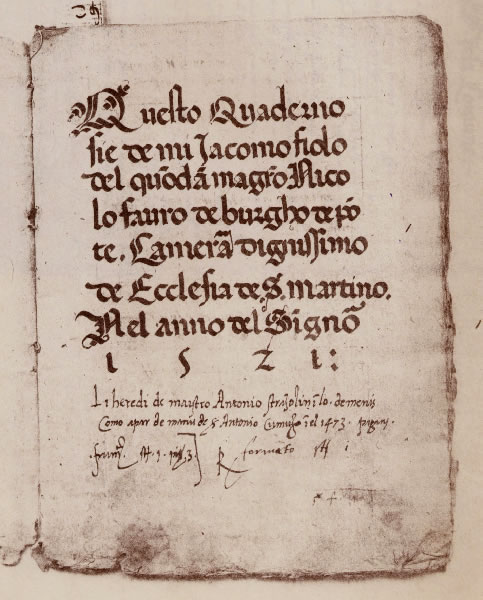 Questo Quaderno
sie de mi Jacomo fiolo
del quõdã magrõ Nico
lo fauro de burgho de põ
te. Camerã dignissimo
de Ecclesia de .S. martino.
Nel anno del Signõ
1 5 2 1:
Li heredi de maistro Antonio
Como apar de man de S Antonio el 1473.
formato